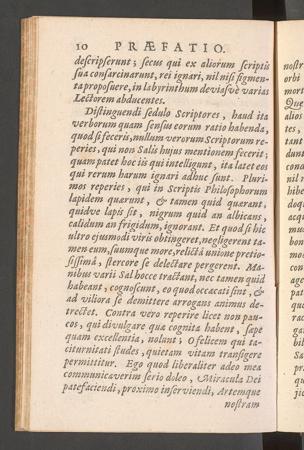 10 PRÆFATIO.
descripserunt; secus qui ex aliorum scriptis
sua consarcinarunt, rei ignari, nil nisi figmen-
ta proposuere, in labyrinthum deviasve varias
Lectorem abducentes.
Distinguendi sedulo Scriptores, haud ita
verborum quam sensus eorum ratio habenda,
quod si feceris, nullum verorum Scriptorum re-
peries, qui non Salis hujus mentionem fecerit;
quam patet hoc iis qui intelligunt, ita latet eos
qui rerum harum ignari adhuc sunt. Pluri-
mos reperies, qui in Scriptis Philosophorum
lapidem quærunt, & tamen quid quærant,
quidve lapis sit, nigrum quid an albicans,
calidum an frigidum, ignorant. Et quod si hic
ultro ejusmodi viris obtingeret, negligerent ta-
men eum, suumque more, relictâ unione pretio-
sissimâ, stercore se delectare pergerent. Ma-
nibus varii Sal hocce tractant, nec tamen quid
habeant, cognoscunt, eo quod occæcati sint, &
ad viliora se demittere arrogans animus de-
trectet. Contra vero reperire licet non pau-
cos, qui divulgare quæ cognita habent, sæpe
quam excellentia, nolunt; O felicem qui ta-
citurnitati studes, quietam vitam transigere
permittitur. Ego quod liberaliter adeo mea
communicaverim serio doleo, Miracula Dei
patefaciendi, proximo inserviendi, Artemque
nostram